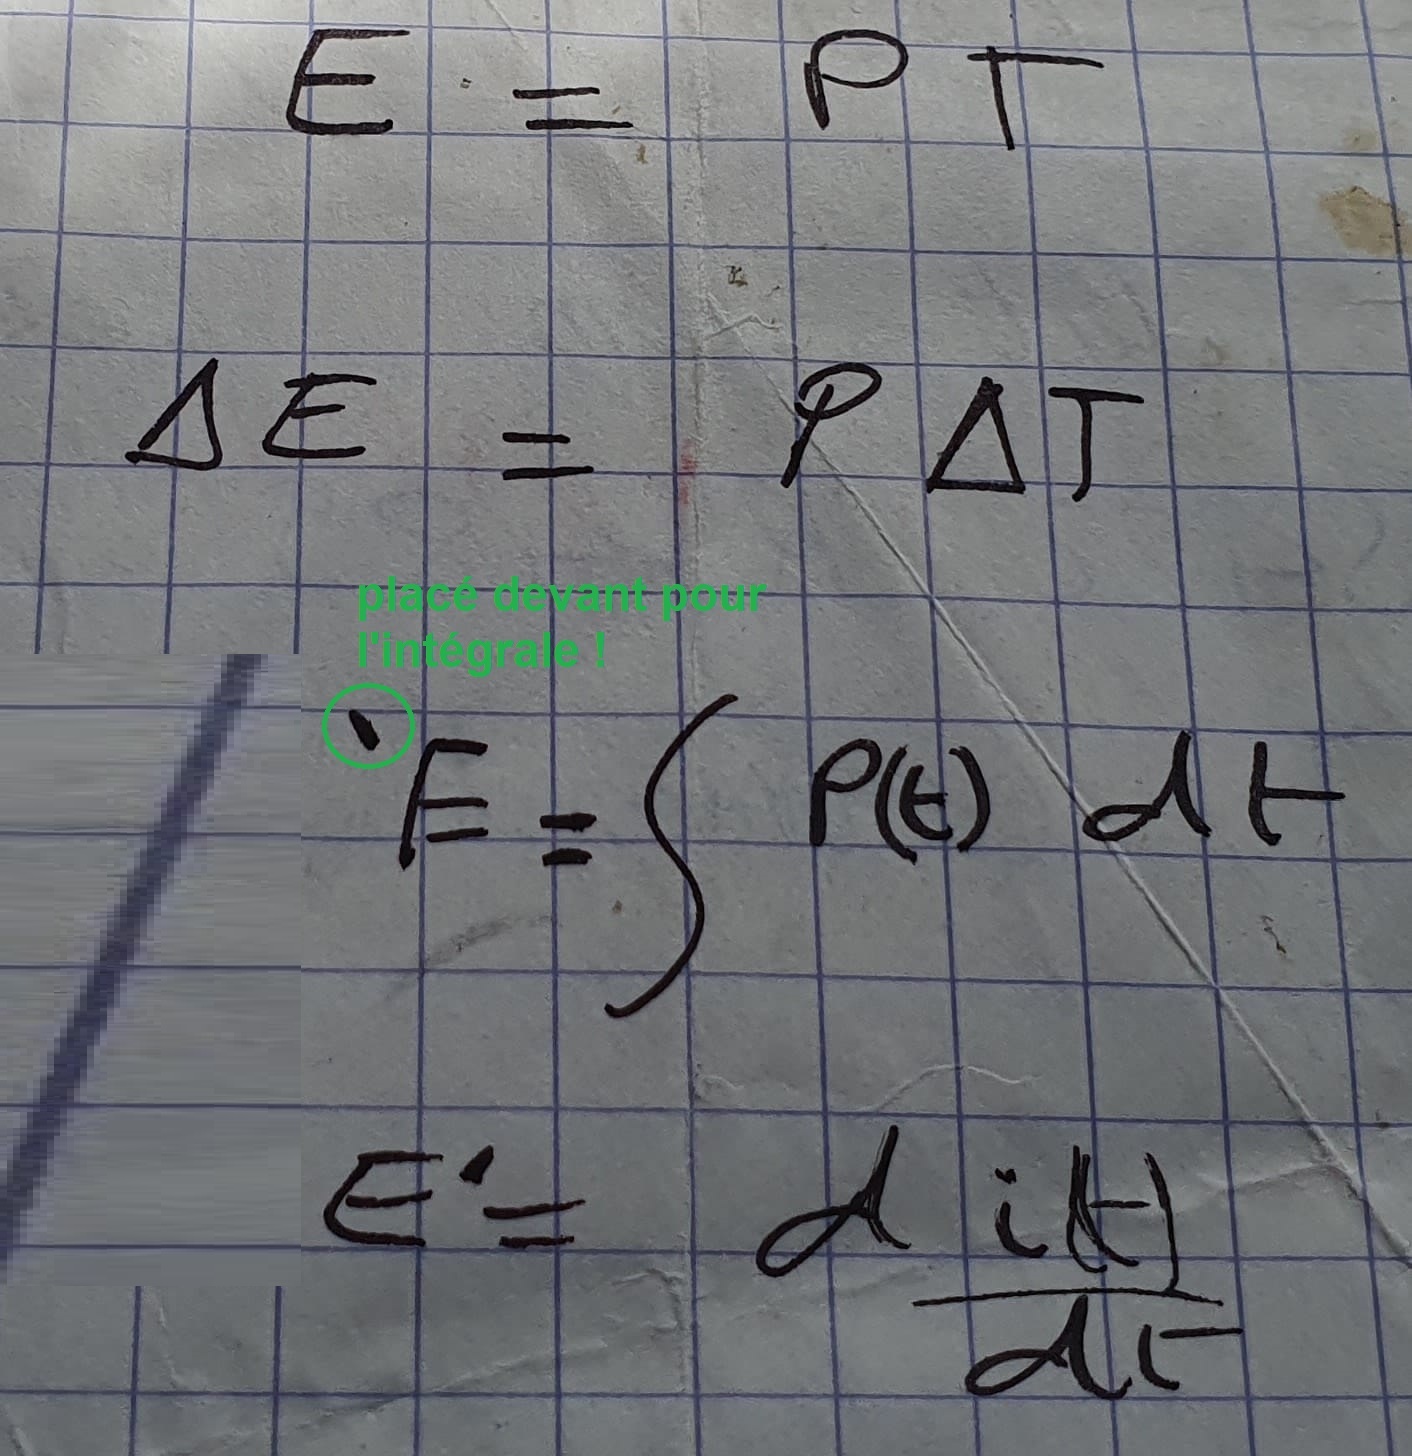 E = PT
ΔE = PΔT
placé devant pour
l'intégrale !
‵E = ∫ P(t) dt
E' = d i(t)
dt